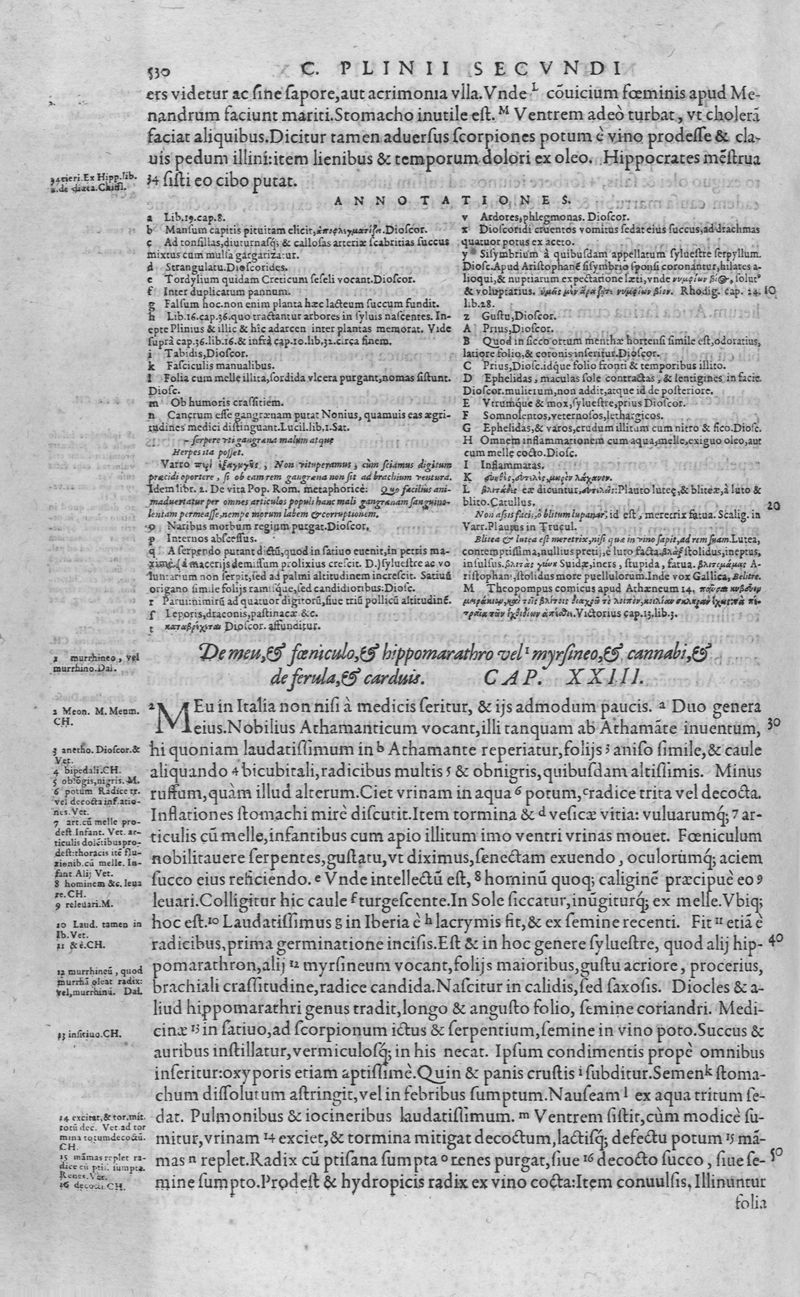 530 C. PLINII SECVNDI
ers videtur ac sine sapore, aut acrimonia vlla. Vnde L cõuicium fœminis apud Me-
nandrum faciunt mariti. Stomacho inutile est. M Ventrem adeò turbat, vt cholerã
faciat aliquibus. Dicitur tamen aduersus scorpiones potum è vino prodesse & cla-
uis pedum illini: item lienibus & temporum dolori ex oleo. Hippocrates mẽstrua
34 sisti eo cibo putat.
34 fieri. Ex Hipp. lib.
2. de diæta. Chiffl.
ANNOTATIONES.
a Lib. 19. cap. 8.
b Mansum capitis pituitam elicit, Dioscor.
c Ad tonsillas, diuturnasq; & callosas arteriæ scabritias succus
mixtus cum mulsa gargarizatur.
d Strangulatu. Dioscorides.
e Tordylium quidam Creticum seseli vocant. Dioscor.
f Inter duplicatum pannum.
g Falsum hoc. non enim planta hæc lacteum succum fundit.
h Lib. 16. cap. 36. quo tractantur arbores in syluis nascentes. In-
epte Plinius & illic & hîc adarcen inter plantas memorat. Vide
suprà cap. 36. lib. 16. & infrà cap. 10. lib. 32. circa finem.
i Tabidis, Dioscor.
k Fasciculis manualibus.
l Folia cum melle illita, sordida vlcera purgant, nomas sistunt.
Diosc.
m Ob humoris crassitiem.
n Cancrum esse gangrænam putat Nonius, quamuis eas ægri-
tudines medici distinguant. Lucil. lib. 1. Sat.
– serpere vti gangrana malum atque
Herpestia posset.
Varro Non vituperamus, cùm sciamus digitum
præcidi oportere, si ob eam rem gangrana non sit ad brachium ventura.
Idem libr. 2. De vita Pop. Rom. metaphoricè. Quo facilius ani-
maduertatur per omnes articulos populi hanc mali gangranam sanguino-
lentam permeasse, nempe morum labem & corruptionem.
o Naribus morbum regium purgat. Dioscor.
p Internos abscessus.
q A serpendo putant dictũ, quod in satiuo euenit, in petris ma-
ximè, à macerijs demissum prolixius crescit. D.) syluestre ac vo
luntarium non serpit, sed ad palmi altitudinem increscit. Satiuũ
origano simile folijs ramisque, sed candidioribus. Diosc.
r Parui: nimirũ ad quatuor digitorũ, siue triũ pollicũ altitudinẽ.
s Leporis, draconis, pastinacæ &c.
t Dioscor. affunditur.
v Ardores, phlegmonas. Dioscor.
x Dioscoridi cruentos vomitus sedat eius succus, ad drachmas
quatuor potus ex aceto.
y Sisymbrium à quibusdam appellatum syluestre serpyllum.
Diosc. Apud Aristophanẽ sisymbrio sponsi coronantur, hilares a-
lioqui, & nuptiarum expectatione læti, vnde solut9
& voluptarius. Rhodig. cap. 24. 10
lib. 28.
z Gustu, Dioscor.
A Prius, Dioscor.
B Quod in sicco ortum menthæ hortensi simile est, odoratius,
latiore folio, & coronis inseritur. Dioscor.
C Prius, Diosc. idque folio fronti & temporibus illito.
D Ephelidas, maculas sole contractas, & lentigines in facie.
Dioscor. mulierum, non addit, atque id de posteriore.
E Vtrumque & mox, syluestre, prius Dioscor.
F Somnolentos, veternosos, lethargicos.
G Ephelidas, & varos, crudum illitum cum nitro & fico. Diosc.
H Omnem inflammationem cum aqua, melle, exiguo oleo, aut
cum melle cocto. Diosc.
I Inflammatas.
K
L ex dicuntur, Plauto luteę, & bliteæ, à luto &
blito. Catullus. 20
Non assis facis, ô blitum lupanar. id est, meretrix fatua. Scalig. in
Varr. Plautus in Trucul.
Blitea & lutea est meretrix, nisi qua in vino sapit, ad rem suam. Lutea,
contemptissima, nullius pretij, è luto facta. stolidus, ineptus,
insulsus. Suidæ, iners, stupida, fatua. A-
ristophani, stolidus more puellulorum. Inde vox Gallica, Belitre.
M Theopompus comicus apud Athæneum 14.
Victorius cap. 13. lib. 3.
1 murrhineo, vel
murrhino. Dal.
De meu, & fœniculo, & hippomarathro vel 1 myrsineo, & cannabi, &
de ferula, & carduis. CAP. XXIII.
2 Meon. M. Meum.
CH.
3 anetho. Dioscor. &
Vet.
4 bipedali. CH.
5 oblõgis, nigris. M.
6 potum Radice tr.
vel decocta inflatio-
nes. Vet.
7 art. cũ melle pro-
dest. Infant. Vet. ar-
ticulis dolẽtibus pro-
dest: thoracis itẽ flu-
xionib. cũ melle. In-
fant Alij Vet.
8 hominem &c. leua
re. CH.
9 releuari. M.
10 Laud. tamen in
Ib. Vet.
11 & è. CH.
12 murrhineũ, quod
murrhã oleat radix:
vel, murrhinũ. Dal.
13 insitiuo. CH.
14 excitat, & tor. mit.
totũ dec. Vet ad tor
mina totum decoctũ.
CH.
15 mãmas replet ra-
dice cũ ptis. sumpta.
Renes. Vet.
16 decocti. CH.
2 MEu in Italia non nisi à medicis seritur, & ijs admodum paucis. a Duo genera
eius. Nobilius Athamanticum vocant, illi tanquam ab Athamãte inuentum, 30
hi quoniam laudatissimum in b Athamante reperiatur, folijs 3 aniso simile, & caule
aliquando 4 bicubitali, radicibus multis 5 & obnigris, quibusdam altissimis. Minus
ruffum, quàm illud alterum. Ciet vrinam in aqua 6 potum, c radice trita vel decocta.
Inflationes stomachi mirè discutit. Item tormina & d vesicæ vitia: vuluarumq; 7 ar-
ticulis cũ melle, infantibus cum apio illitum imo ventri vrinas mouet. Fœniculum
nobilitauere serpentes, gustatu, vt diximus, senectam exuendo, oculorumq; aciem
succo eius reficiendo. e Vnde intellectũ est, 8 hominũ quoq; caliginẽ præcipuè eo 9
leuari. Colligitur hic caule f turgescente. In Sole siccatur, inũgiturq; ex melle. Vbiq;
hoc est. 10 Laudatissimus g in Iberia è h lacrymis fit, & ex semine recenti. Fit 11 etiã è
radicibus, prima germinatione incisis. Est & in hoc genere syluestre, quod alij hip- 40
pomarathron, alij 12 myrsineum vocant, folijs maioribus, gustu acriore, procerius,
brachiali crassitudine, radice candida. Nascitur in calidis, sed saxosis. Diocles & a-
liud hippomarathri genus tradit, longo & angusto folio, semine coriandri. Medi-
cinæ 13 in satiuo, ad scorpionum ictus & serpentium, semine in vino poto. Succus &
auribus instillatur, vermiculosq; in his necat. Ipsum condimentis propè omnibus
inseritur: oxyporis etiam aptissimè. Quin & panis crustis i subditur. Semen k stoma-
chum dissolutum astringit, vel in febribus sumptum. Nauseam l ex aqua tritum se-
dat. Pulmonibus & iocineribus laudatissimum. m Ventrem sistit, cùm modicè su-
mitur, vrinam 14 exciet, & tormina mitigat decoctum, lactisq; defectu potum 15 mã-
mas n replet. Radix cũ ptisana sumpta o renes purgat, siue 16 decocto succo, siue se- 50
mine sumpto. Prodest & hydropicis radix ex vino cocta: Item conuulsis. Illinuntur
folia